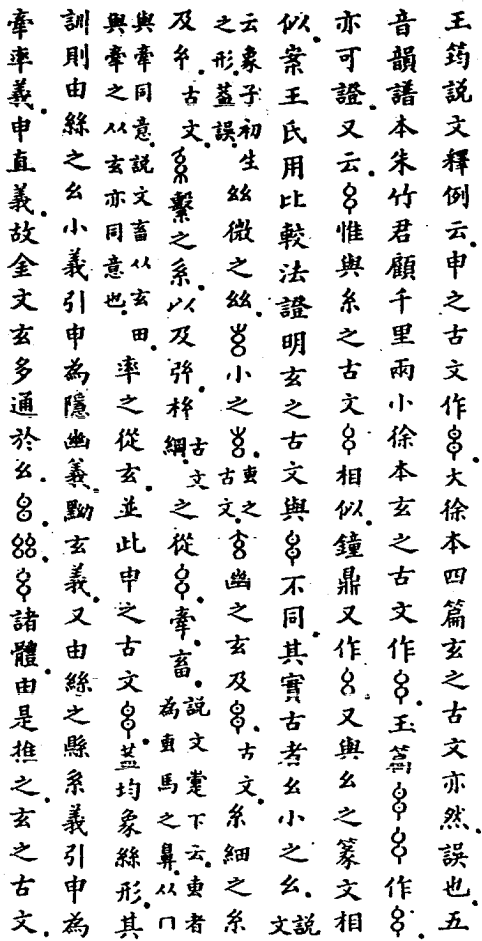 王筠說文釋例云。申之古文作。大徐本四篇玄之古文亦然。誤也。五
音韻譜本朱竹君顧千里兩小徐本玄之古文作。玉篇作。
亦可證。又云。惟與糸之古文相似。鐘鼎又作又與幺之篆文相
似。案王氏用比較法證明玄之古文與不同。其實古者幺小之幺。說文
云象子初生之形。蓋誤。𢆶微之𢆶。小之。叀之古文。幽之玄及。古文。糸細之糸
及糸。古文。繫之系。以及綱古文。之從。牽。畜。說文疐下云。叀者為叀馬之鼻。从冂
與牽同意。說文畜从玄田。與牽之从玄亦同意也。率之從玄。並此申之古文。蓋均象絲形。其
訓則由絲之幺小義引申為隱幽義。黝玄義。又由絲之縣系義引申為
牽率義。申直義。故金文玄多通於幺。諸體。由是推之。玄之古文。